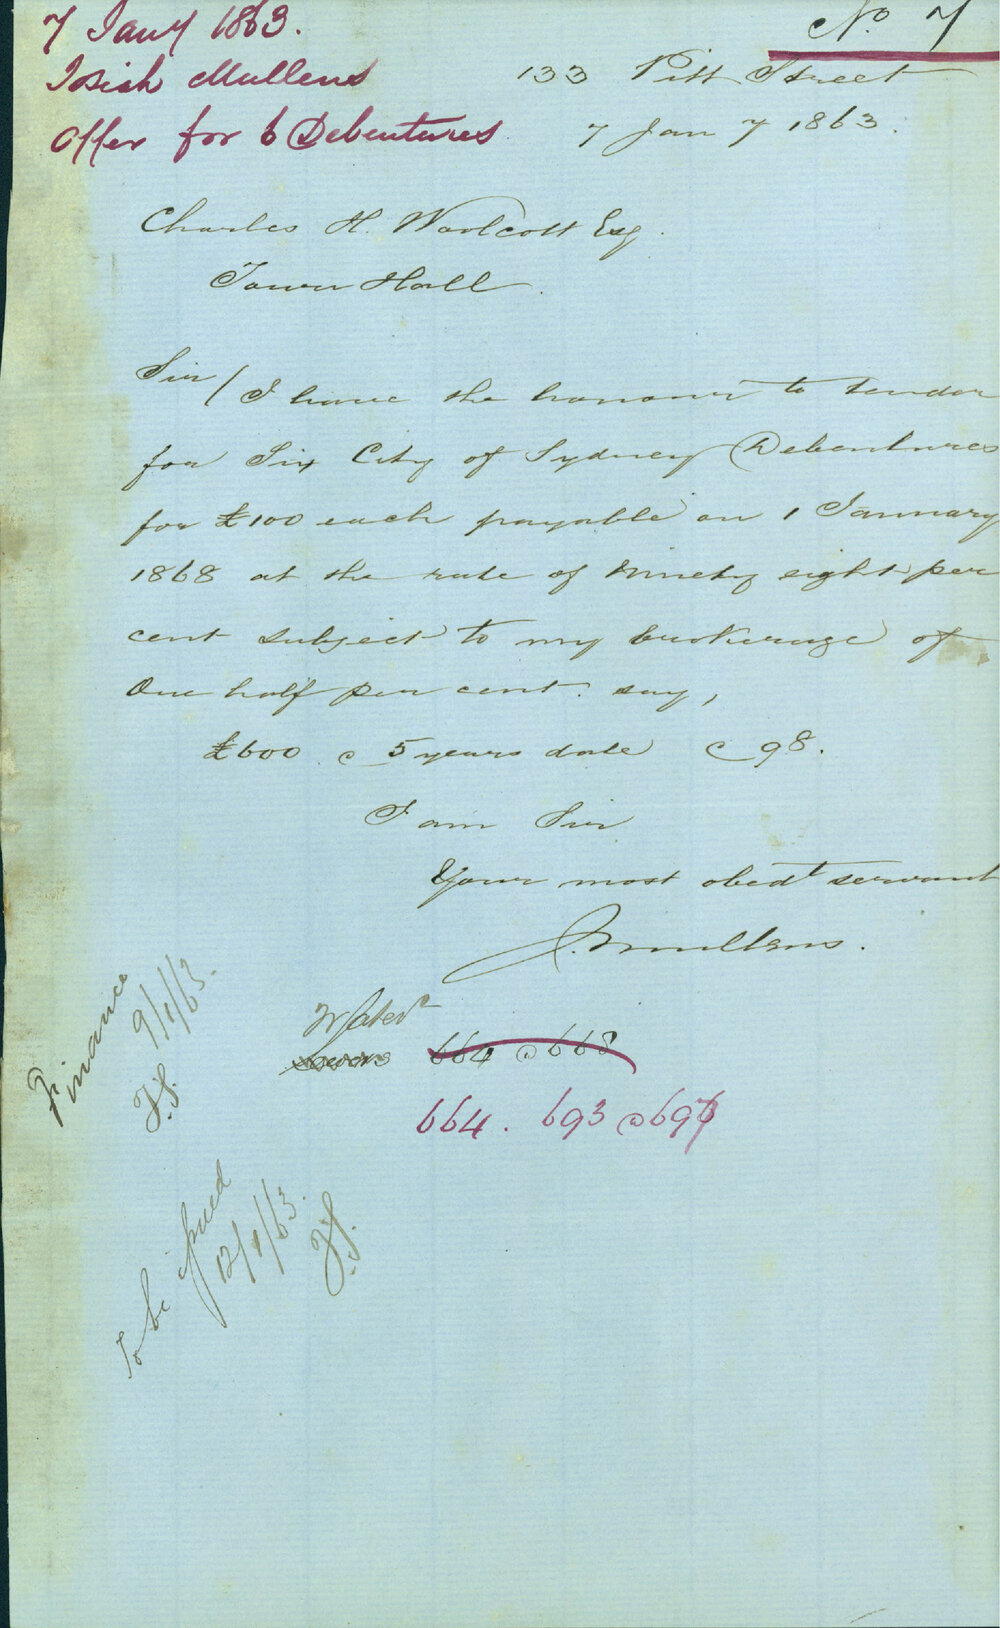 7 Jany 1863.
Josiah Mullens
Offer for 6 Debentures
No 7
133 Pitt Street
7 Jany 1863.
Charles H. Woolcott Esq.
Town Hall
Sir / I have the honour to tender
for Six City of Sydney Debentures
for £100 each payable on 1 January
1868 at the rate of Ninety eight per
cent subject to my brokerage of
One half per cent. say,
£600 @ 5 years date @ 98.
I am Sir
Your most obedt servant
J. Mullens.
Water
Sewers 664 @ 668
664. 693 @ 697
Finance
9/1/63.
To be issued
12/1/63.